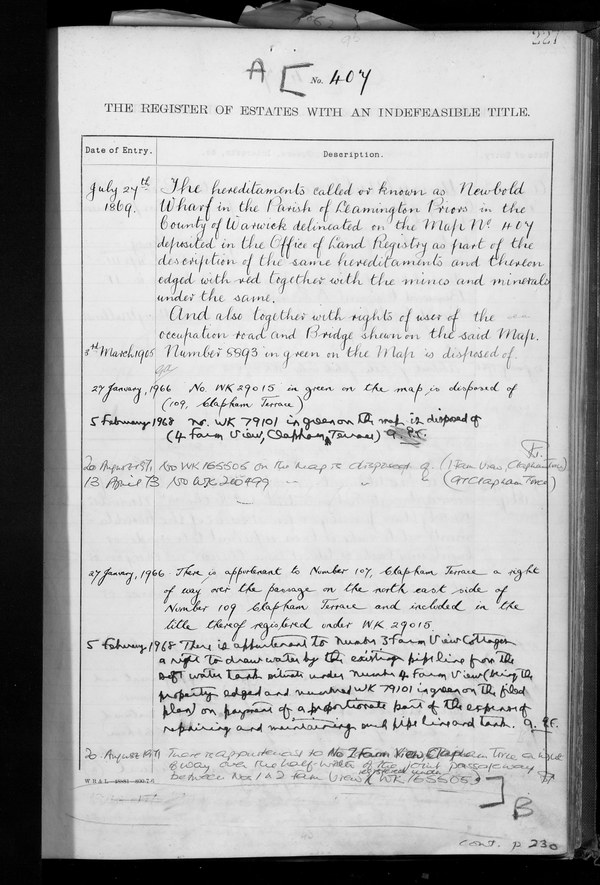 227
A [ No. 407
THE REGISTER OF ESTATES WITH AN INDEFEASIBLE TITLE.
Date of Entry. Description.
July 27th The hereditaments called or known as Newbold
1869. Wharf in the Parish of Leamington Priors in the
County of Warwick delineated on the Map No. 407
deposited in the Office of Land Registry as part of the
description of the same hereditaments and thereon
edged with red together with the mines and minerals
under the same.
And also together with rights of user of the
occupation road and Bridge shewn on the said Map.
3rd March 1905 Number 5893 in green on the Map is disposed of.
27 January, 1966 No. WK 29015 in green on the map is disposed of
(109, Clapham Terrace)
5 February 1968 no. WK 79101 in green on the map is disposed of
(4 Farm View, Clapham Terrace)
20 August 1971 No WK 165505 on the map is disposed of (1 Farm View, Clapham Terrace)
13 April 73 No WK 200499 " " " (97 Clapham Terrace)
27 January, 1966 There is appurtenant to Number 107, Clapham Terrace a right
of way over the passage on the north east side of
Number 109 Clapham Terrace and included in the
title thereof registered under WK 29015
5 February 1968 There is appurtenant to number 3 Farm View Cottages
a right to draw water by the existing pipe line from the
soft water tank situate under number 4 Farm View (being the
property edged and numbered WK 79101 in green on the filed
plan) on payment of a proportionate part of the expense of
repairing and maintaining such pipe line and tank.
20 August 1971 There is appurtenant to No 2 Farm View, Clapham Terrace a right
of way over the half-width of the joint passageway
between Nos 1 & 2 Farm View registered under WK 165505 ]
B
cont. p 230